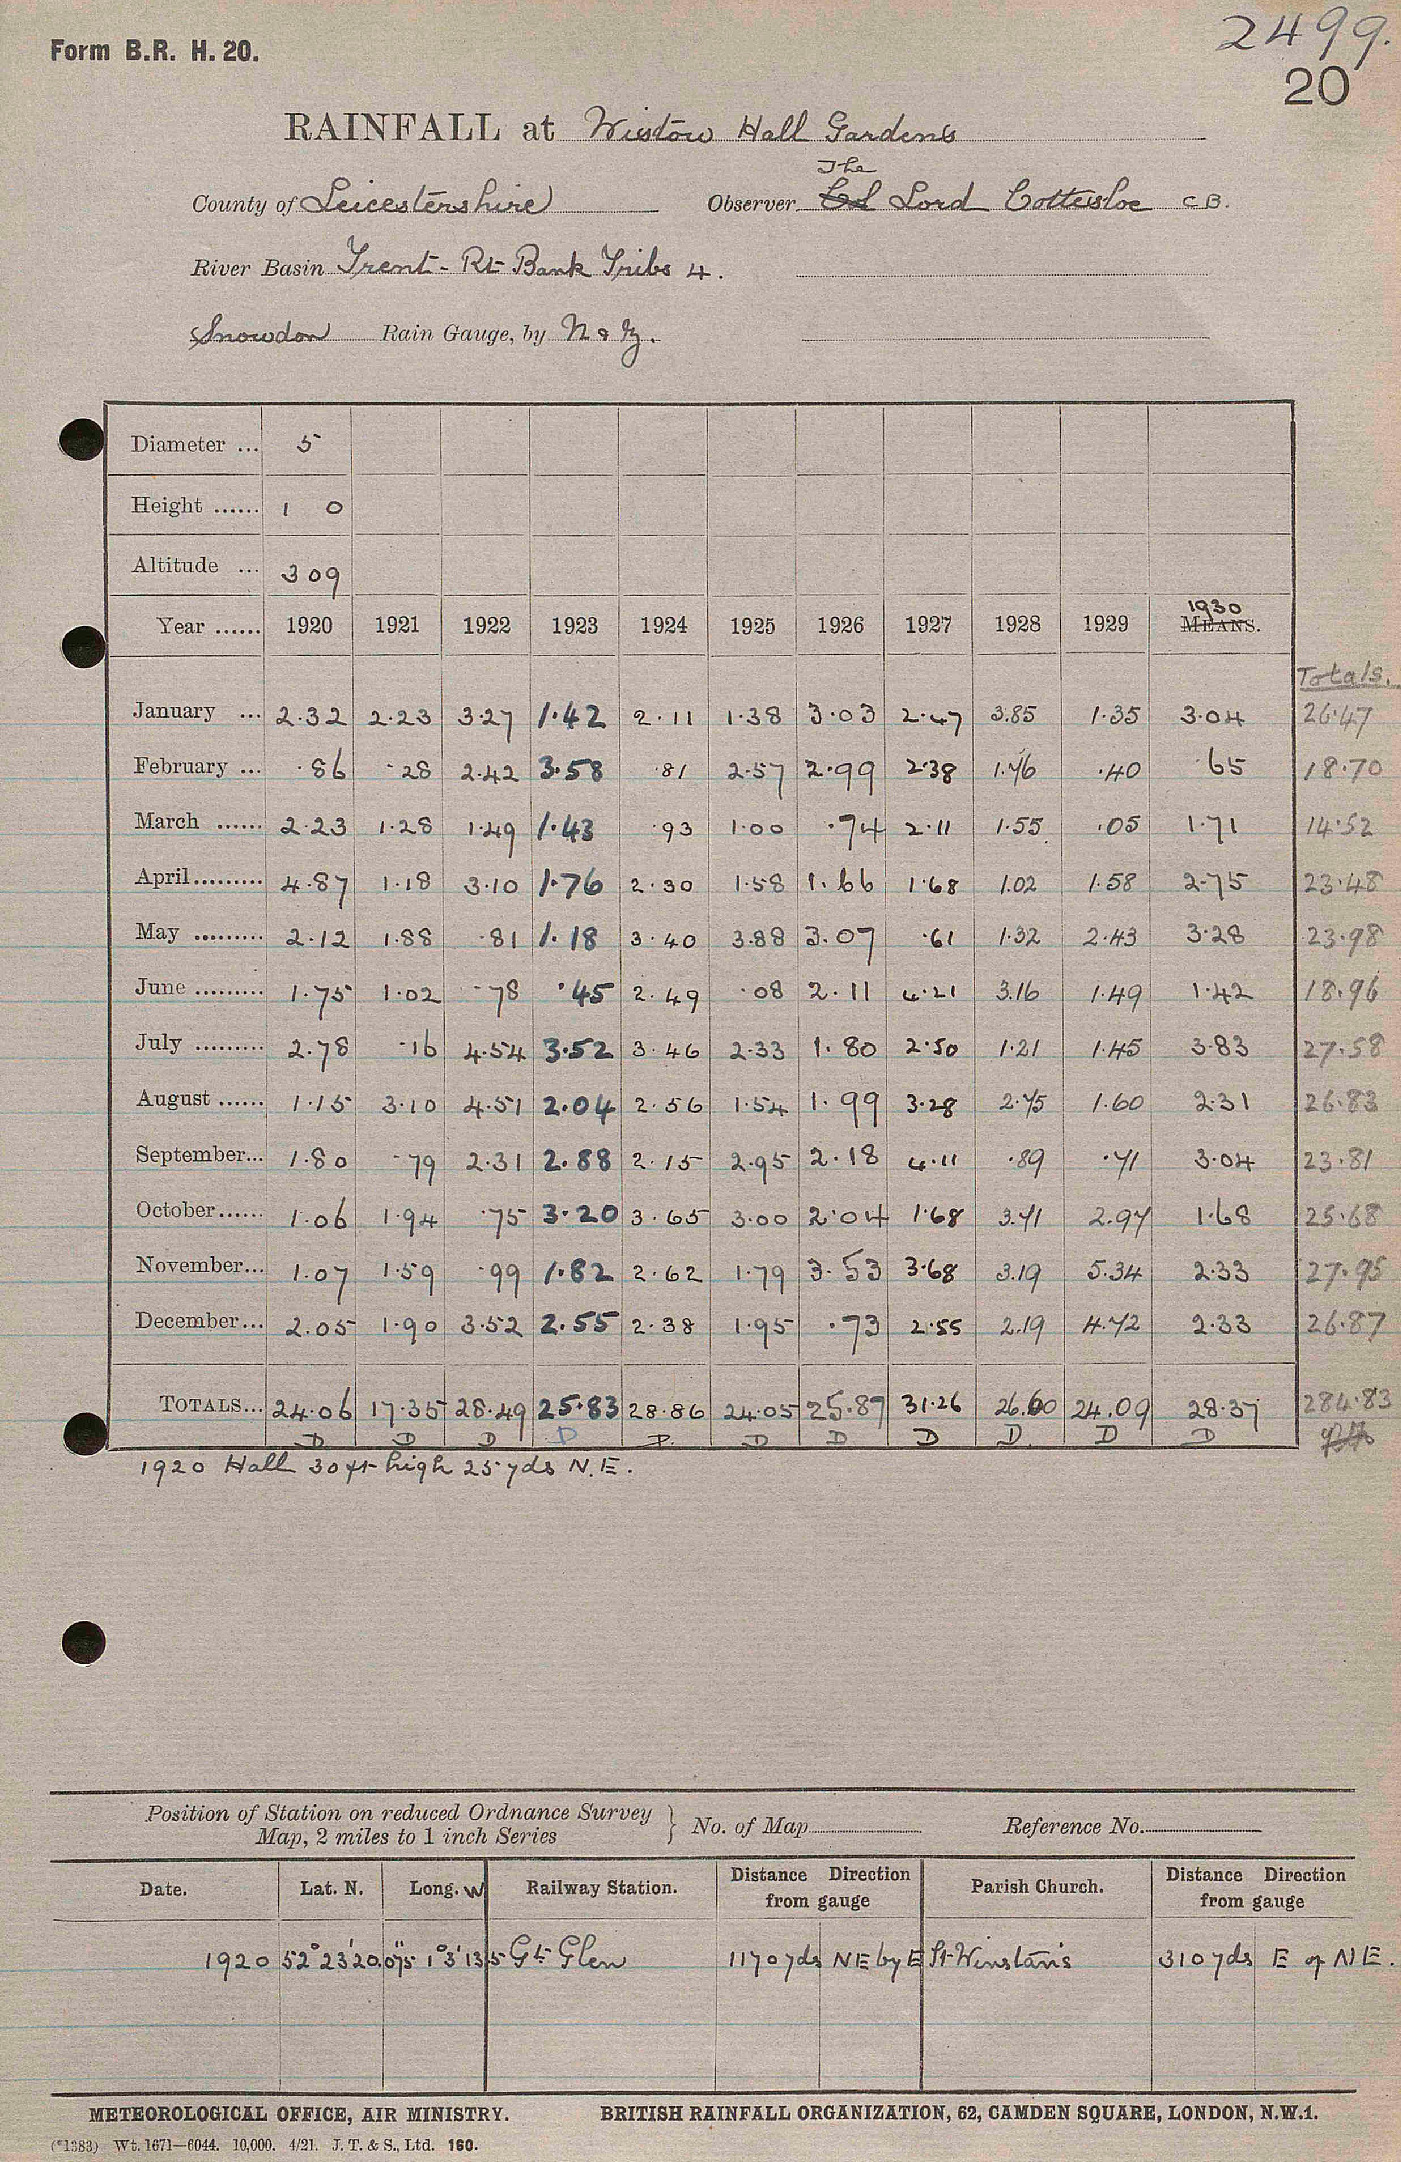 Form B.R. H. 20.
2499.
20
RAINFALL at Wistow Hall Gardens
The
County of Leicestershire Observer. Col Lord Cottesloe CB.
River Basin Trent - Rt Bank Tribs 4.
Snowdon Rain Gauge, by N & Z.
Diameter ... 5
Height ...... 1 0
Altitude ... 309
1930
Year ...... 1920 1921 1922 1923 1924 1925 1926 1927 1928 1929 MEANS.
Totals.
January ... 2.32 2.23 3.27 1.42 2.11 1.38 3.03 2.47 3.85 1.35 3.04 26.47
February ... .86 .28 2.42 3.58 .81 2.57 2.99 2.38 1.76 .40 .65 18.70
March ...... 2.23 1.28 1.49 1.43 .93 1.00 .74 2.11 1.55 .05 1.71 14.52
April ......... 4.87 1.18 3.10 1.76 2.30 1.58 1.66 1.68 1.02 1.58 2.75 23.48
May ......... 2.12 1.88 .81 1.18 3.40 3.88 3.07 .61 1.32 2.43 3.28 23.98
June ......... 1.75 1.02 .78 .45 2.49 .08 2.11 4.21 3.16 1.49 1.42 18.96
July ......... 2.78 .16 4.54 3.52 3.46 2.33 1.80 2.50 1.21 1.45 3.83 27.58
August ...... 1.15 3.10 4.51 2.04 2.56 1.54 1.99 3.28 2.75 1.60 2.31 26.83
September... 1.80 .79 2.31 2.88 2.15 2.95 2.18 4.11 .89 .71 3.04 23.81
October...... 1.06 1.94 .75 3.20 3.65 3.00 2.04 1.68 3.71 2.97 1.68 25.68
November... 1.07 1.59 .99 1.82 2.62 1.79 3.53 3.68 3.19 5.34 2.33 27.95
December... 2.05 1.90 3.52 2.55 2.38 1.95 .73 2.55 2.19 4.72 2.33 26.87
TOTALS... 24.06 17.35 28.49 25.83 28.86 24.05 25.87 31.26 26.60 24.09 28.37 284.83
D D D D D. D D D D. D D
1920 Hall 30 ft high 25 yds N.E.
Position of Station on reduced Ordnance Survey Map, 2 miles to 1 inch Series } No. of Map Reference No.
Date. Lat. N. Long. W Railway Station. Distance Direction from gauge Parish Church. Distance Direction from gauge
1920 52° 23' 20.075" 1° 3' 13.5 Gt Glen 1170 yds NE by E St Winstan's 310 yds E of NE.
METEOROLOGICAL OFFICE, AIR MINISTRY. BRITISH RAINFALL ORGANIZATION, 62, CAMDEN SQUARE, LONDON, N.W.1.
(*1383) Wt. 1671—6044. 10,000. 4/21. J. T. & S., Ltd. 160.